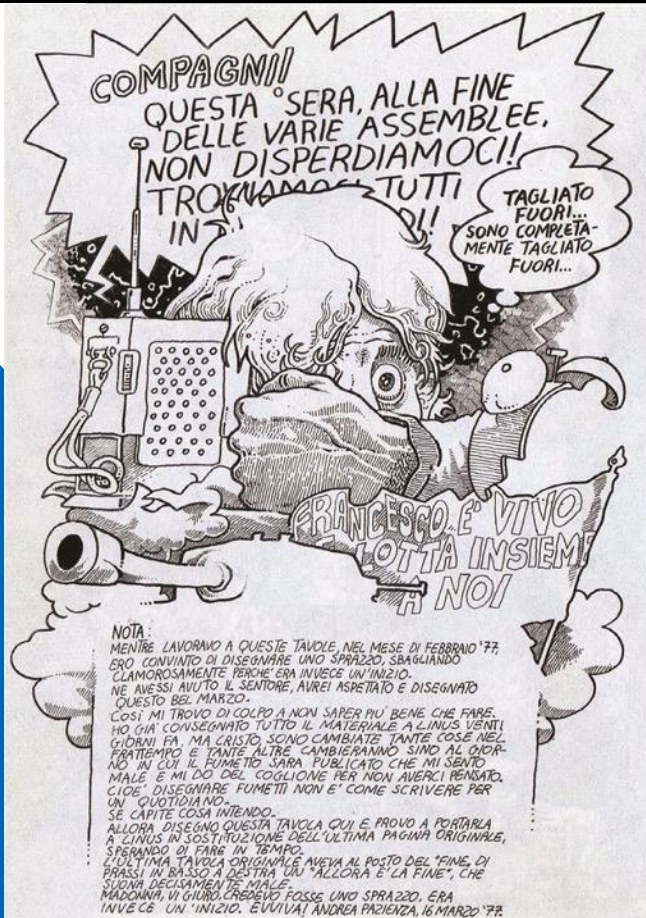 COMPAGNI!
QUESTA SERA, ALLA FINE
DELLE VARIE ASSEMBLEE,
NON DISPERDIAMOCI!
TUTTI
IN
TAGLIATO
FUORI...
SONO COMPLETA-
MENTE TAGLIATO
FUORI...
FRANCESCO È VIVO
LOTTA INSIEME
A NOI
NOTA:
MENTRE LAVORAVO A QUESTE TAVOLE, NEL MESE DI FEBBRAIO '77,
ERO CONVINTO DI DISEGNARE UNO SPRAZZO, SBAGLIANDO
CLAMOROSAMENTE PERCHE' ERA INVECE UN'INIZIO.
NE AVESSI AVUTO IL SENTORE, AVREI ASPETTATO E DISEGNATO
QUESTO BEL MARZO.
COSÌ MI TROVO DI COLPO A NON SAPER PIU' BENE CHE FARE.
HO GIA' CONSEGNATO TUTTO IL MATERIALE A LINUS VENTI
GIORNI FA, MA CRISTO, SONO CAMBIATE TANTE COSE NEL
FRATTEMPO E TANTE ALTRE CAMBIERANNO SINO AL GIOR-
NO IN CUI IL FUMETTO SARA PUBLICATO CHE MI SENTO
MALE E MI DO DEL COGLIONE PER NON AVERCI PENSATO.
CIOE' DISEGNARE FUMETTI NON E' COME SCRIVERE PER
UN QUOTIDIANO.
SE CAPITE COSA INTENDO.
ALLORA DISEGNO QUESTA TAVOLA QUI E PROVO A PORTARLA
A LINUS IN SOSTITUZIONE DELL'ULTIMA PAGINA ORIGINALE,
SPERANDO DI FARE IN TEMPO.
L'ULTIMA TAVOLA ORIGINALE AVEVA AL POSTO DEL "FINE" DI
PRASSI IN BASSO A DESTRA UN "ALLORA E' LA FINE", CHE
SUONA DECISAMENTE MALE.
MADONNA, VI GIURO, CREDEVO FOSSE UNO SPRAZZO, ERA
INVECE UN'INIZIO. EVVIVA! ANDREA PAZIENZA, 16 MARZO '77.